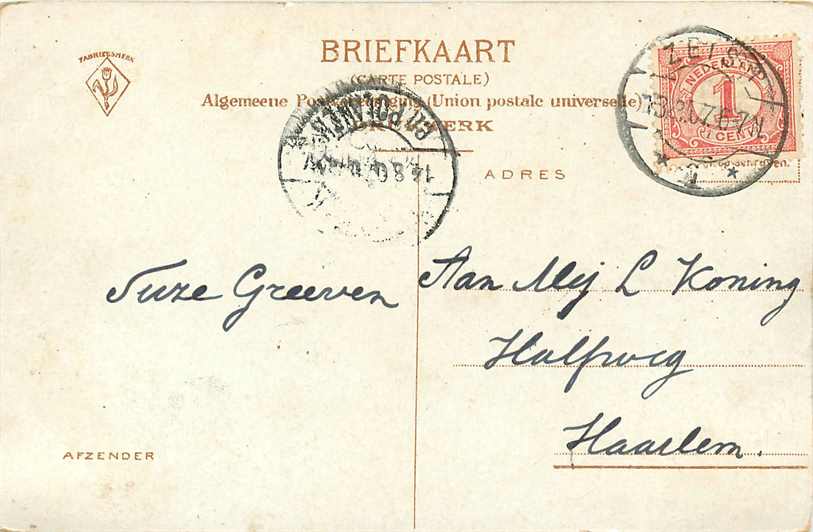 FABRIEKSMERK
BRIEFKAART
(CARTE POSTALE)
Algemeene (Union postale universelle)
ADRES
NEDERLAND
1
CENT
ZEIST
Suze Greeven
Aan Mej L Koning
Halfweg
Haarlem.
AFZENDER